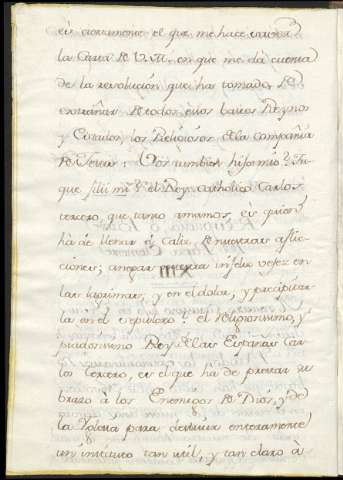 es ciertamente el que me hace
la Carta de V. M. en que me dá cuenta
de la revolucion que ha tomado, de
extrañar de todos estos bastos Reynos
y Estados, los Religiosos de la Compañia
de Jesus: Vos tambien hijo mio?
que fili mi? el Rey Catholico Carlos
tercero, que tanto amamos, es quien
ha de llenar el Caliz de nuestras aflic-
ciones, nuestra infeliz vejez en
las lagrimas, y en el dolor, y precipitar
la en el sepulcro? el religiosisimo, y
piadosisimo Rey de las Españas Car
los tercero, es el que ha de prestar su
brazo á los Enemigos de Dios, y de
la Yglesia para destruir enteramente
un instituto tan util, y tan claro á